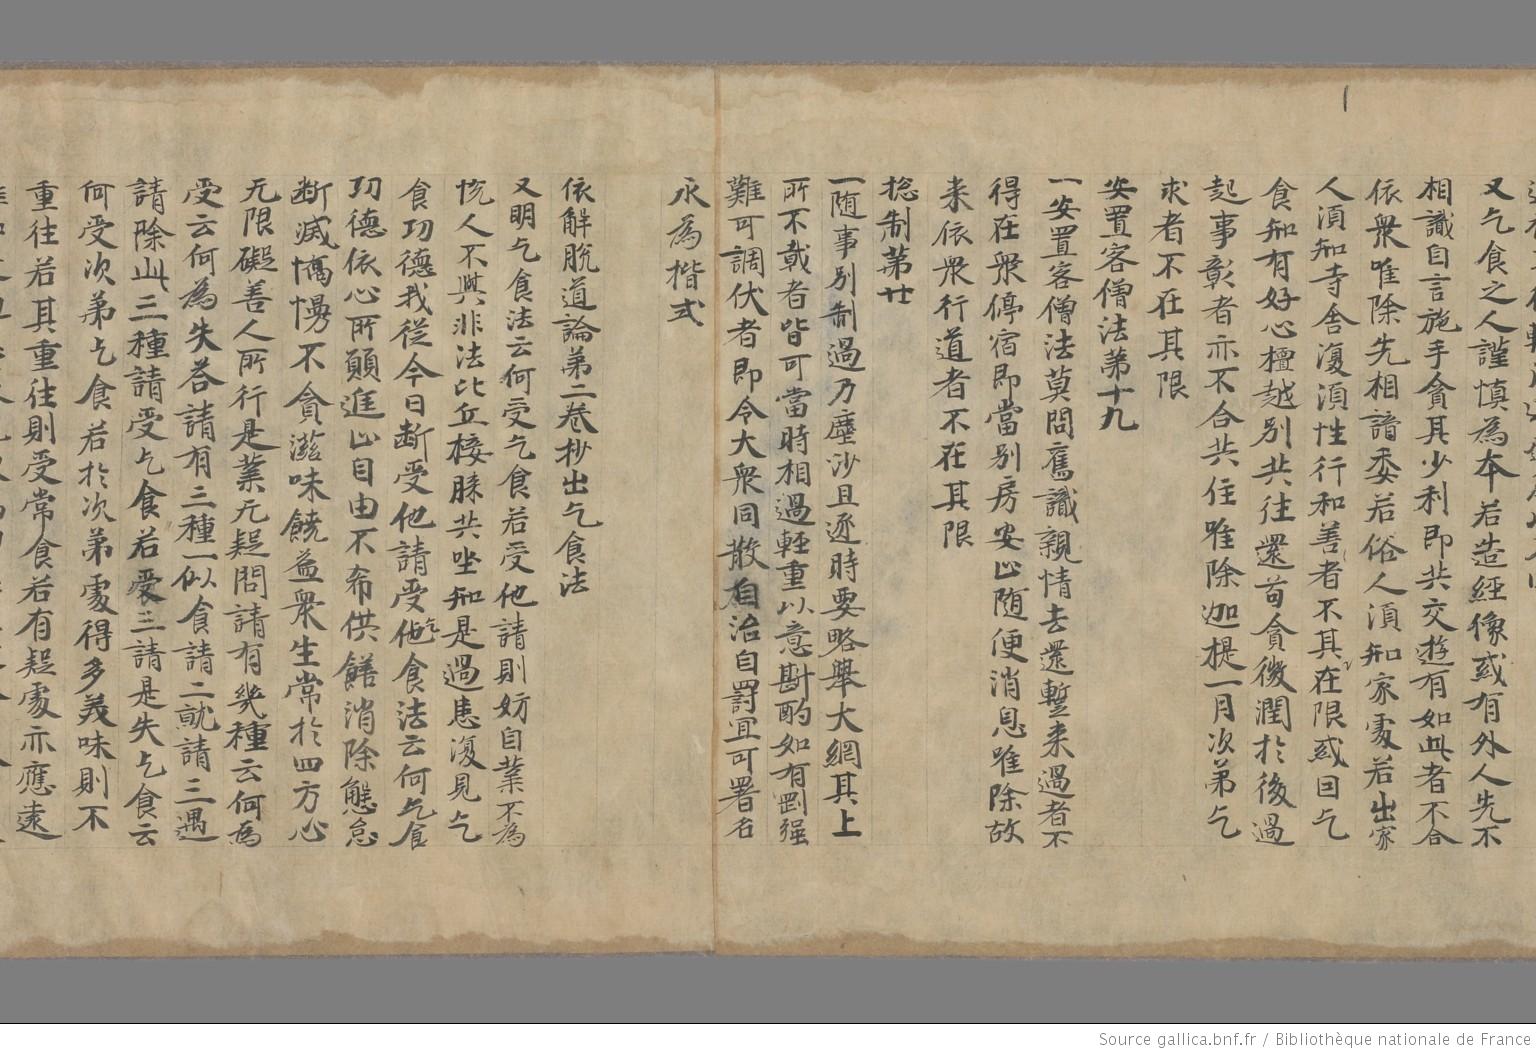 又乞食之人謹慎為本若造經像或有外人先不
相識自言施手貪其少利即共交遊有如此者不合
依衆唯除先相諳委若俗人湏知家處若出家
人湏知寺舍復湏性行和善者不其在限或曰乞
食知有好心檀越別共往還苟貪微潤於後過
起事彰者亦不合共住唯除迦提一月次第乞
求者不在其限
安置客僧法第十九
一安置客僧法莫問舊識親情去還暫来過者不
得在衆停宿即當別房安止随便消息唯除故
来依衆行道者不在其限
捴制第廿
一随事別制過乃塵沙且逐時要略舉大網其上
所不載者皆可當時相過輕重以意斟酌如有剛强
難可調伏者即令大衆同散自治自罸宜可署名
永為楷式
依解脫道論第二卷抄出乞食法
又明乞食法云何受乞食若受他請則妨自業不為
悅人不與非法比丘接膝共坐知是過患復見乞
食功德我從今日斷受他請受他乞食法云何乞食
功德依心所願進止自由不希供饍消除懈怠
斷滅憍慢不貪滋味饒益衆生常於四方心
无限礙善人所行是業无疑問請有幾種云何為
受云何為失荅請有三種一似食請二就請三過
請除此三種請受乞食若受三請是失乞食云
何受次第乞食若於次第處得多美味則不
重往若其重往則受常食若有疑處亦應遠